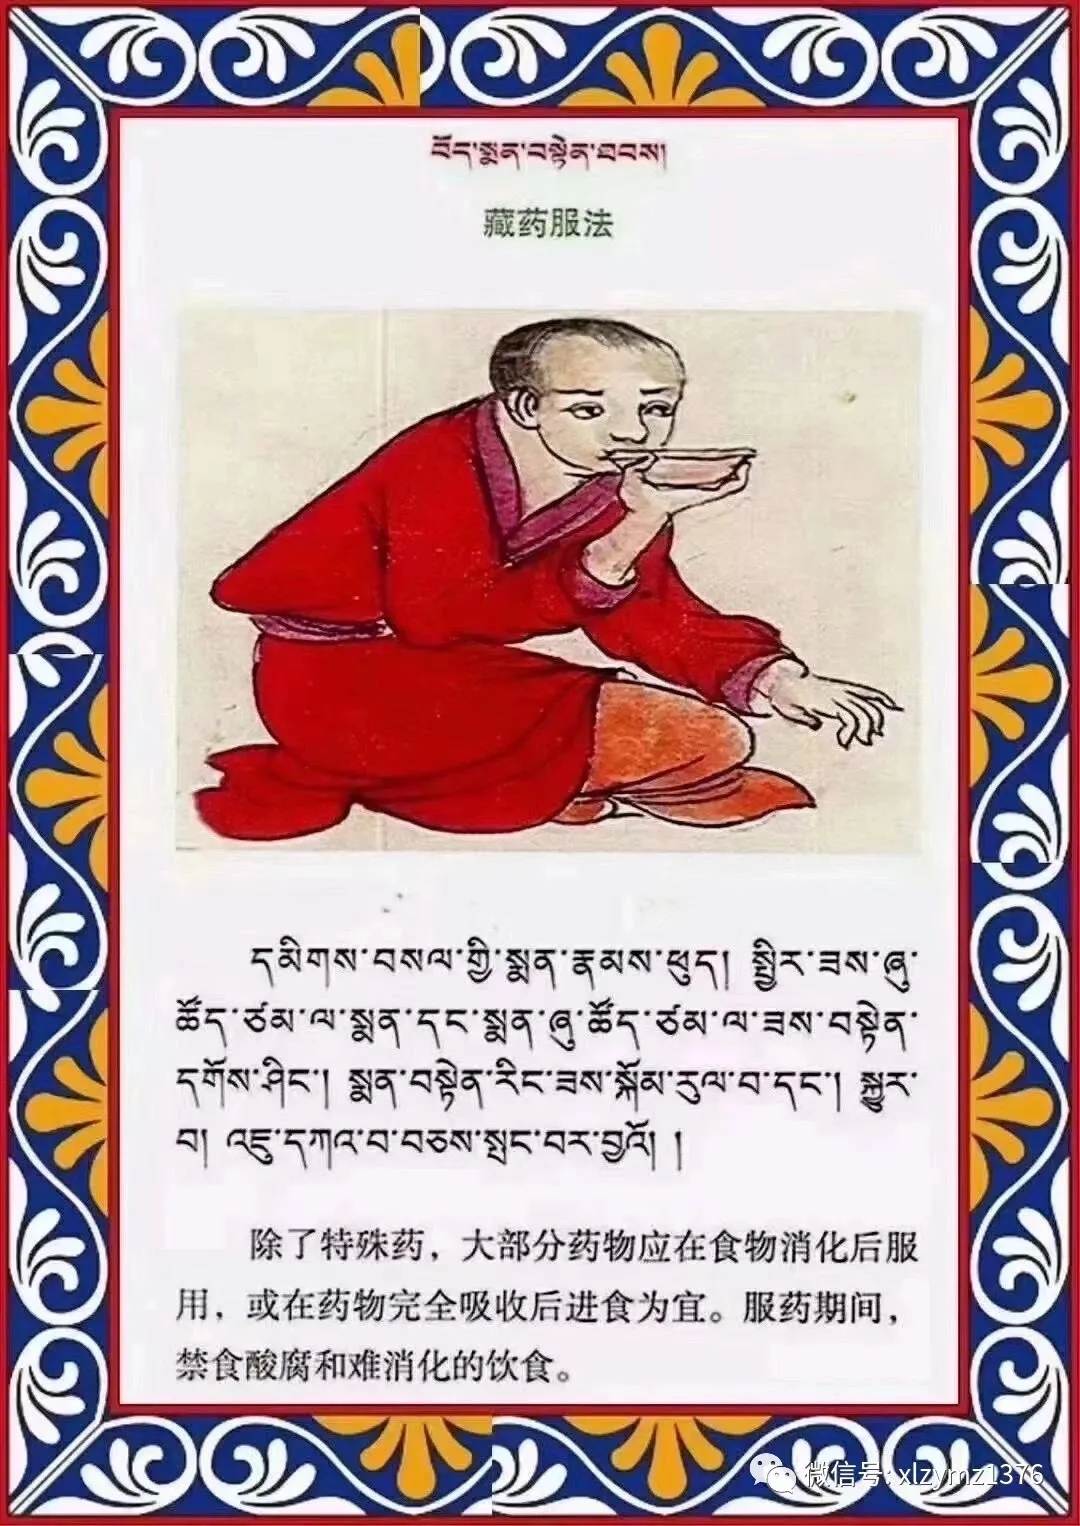 བོད་སྨན་བསྟེན་ཐབས།
藏药服法
དམིགས་བསལ་གྱི་སྨན་རྣམས་ཕུད། སྤྱིར་ཟས་ཞུ་
ཚོད་ཙམ་ལ་སྨན་དང་སྨན་ཞུ་ཚོད་ཙམ་ལ་ཟས་བསྟེན་
དགོས་ཤིང་། སྨན་བསྟེན་རིང་ཟས་སྐོམ་རུལ་བ་དང་། སྐྱུར་
བ། འཇུ་དཀའ་བ་བཅས་སྤང་བར་བྱའོ། །
除了特殊药，大部分药物应在食物消化后服
用，或在药物完全吸收后进食为宜。服药期间，
禁食酸腐和难消化的饮食。
微信号: xlzymz1376